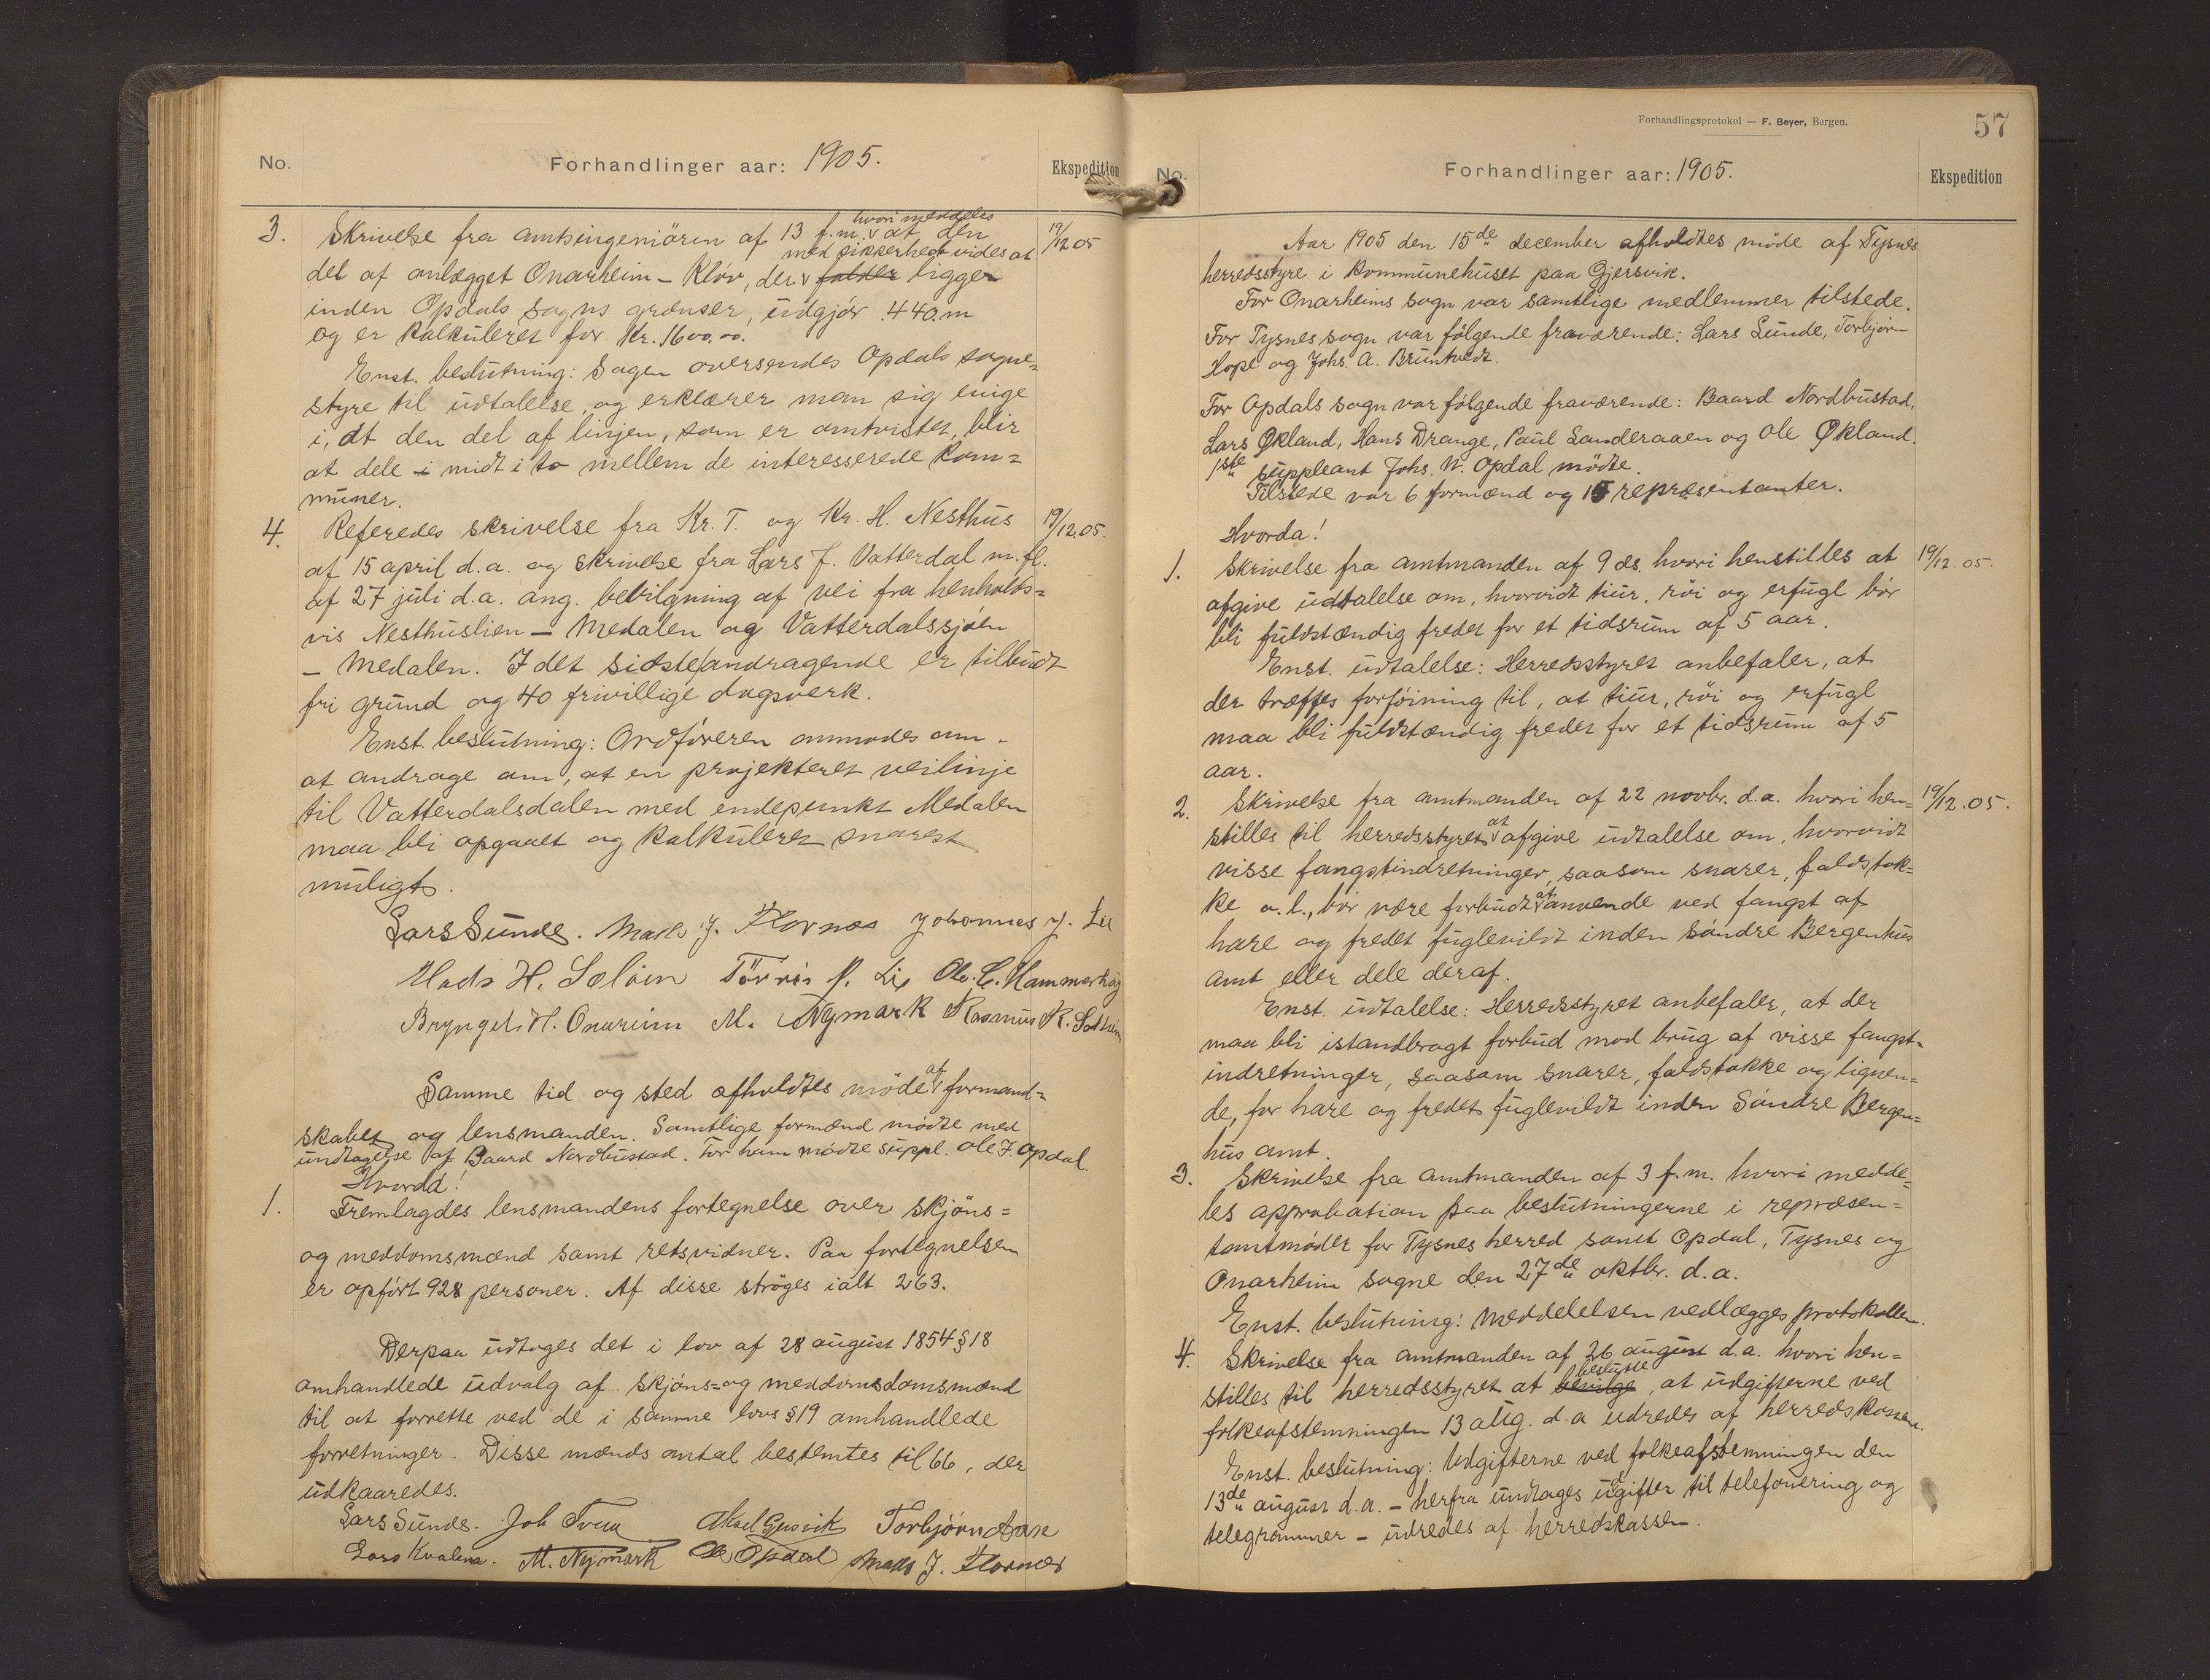 No.
Forhandlinger aar: 1905.
Ekspedition
3. Skrivelse fra amtsingeniören af 13 f.m. hvori meddeles at den 19/12 05
del af anlægget Onarheim - Kløv, der med sikkerhedt vides at falder ligger
inden Opdals sogns grænser, udgjör 440.m
og er kalkuleret for Kr. 1600,00.
Enst. beslutning: Sagen oversendes Opdals sogne=
styre til udtalelse, og erklærer man sig enige
i, at den del af linjen, som er omtvistet, blir
at dele i midt i to mellem de interesserede kom=
muner.
4. Referedes skrivelse fra Kr. T. og Kr. H. Nesthus 19/12.05.
af 15 april d.a. og skrivelse fra Lars J. Vatterdal m.fl.
af 27 juli d.a. ang. bevilgning af vei fra henholds=
vis Nesthuslien - Medalen og Vatterdalssjøen
- Medalen. I det sidste andragende er tilbudt
fri grund og 40 frivillige dagsverk.
Enst. beslutning: Ordföreren anmodes om -
at andrage om, at en projekteret veilinje
til Vatterdalsdalen med endepunkt Medalen
maa bli opgaaet og kalkuleret snarest
muligt.
Lars Sunde. Mads J. Flornes Johannes J. Lie
Mads H. Døløen Tørris N. Lie Ole C. Hammerhaug
Bryngel H. Onareim M. Nymark Rasmus R.
Samme tid og sted afholdtes möde af formand=
skabet og lensmanden. Samtlige formænd mödte med
undtagelse af Baard Nordbustad. For ham mödte suppl. Ole J. Opdal.
Hvorda!
1. Fremlagdes lensmandens fortegnelse over skjöns=
og meddomsmænd samt retsvidner. Paa fortegnelsen
er opført 928 personer. Af disse ströges ialt 263.
Derpaa udtoges det i lov af 28 august 1854 § 18
omhandlede udvalg af skjöns= og meddomsdomsmænd
til at forrette ved de i samme lovs § 19 omhandlede
forretninger. Disse mænds antal bestemtes til 66, der
udkaaredes.
Lars Sunde. Joh Tveit Aksel Gjersvik Torbjørn Aase
Lars Kvalvaa. M. Nymark Ole Opdal Mads J. Flornes
Forhandlingsprotokol — F. Beyer, Bergen.
57
No.
Forhandlinger aar: 1905.
Ekspedition
Aar 1905 den 15de december afholdtes möde af Tysnes
herredsstyre i kommunehuset paa Gjersvik.
For Onarheims sogn var samtlige medlemmer tilstede.
For Tysnes sogn var fölgende fraværende: Lars Sunde, Torbjörn
Hope og Johs. A. Bruntvedt.
For Opdals sogn var fölgende fraværende: Baard Nordbustad,
Lars Økland, Hans Drange, Paul Sanderaaen og Ole Økland.
1ste suppleant Johs. N. Opdal mödte.
Tilstede var 6 formænd og 15 repræsentanter.
Hvorda!
1. Skrivelse fra amtmanden af 9 ds. hvori henstilles at 19/12. 05.
afgive udtalelse om, hvorvidt tiur, röi og erfugl bör
bli fuldstændig fredet for et tidsrum af 5 aar.
Enst. udtalelse: Herredsstyret anbefaler, at
der træffes forföining til, at tiur, röi og erfugl
maa bli fuldstændig fredet for et tidsrum af 5
aar.
2. Skrivelse fra amtmanden af 22 novbr. d.a. hvori hen= 19/12.05.
stilles til herredsstyret at afgive udtalelse om, hvorvidt
visse fangstindretninger, saasom snarer, faldstok=
ke o.l., bör være forbudt at anvende ved fangst af
hare og fredet fuglevildt inden Söndre Bergenhus
amt eller dele deraf.
Enst. udtalelse: Herredsstyret anbefaler, at der
maa bli istandbragt forbud mod brug af visse fangst=
indretninger, saasom snarer, faldstokke og lignen=
de, for hare og fredet fuglevildt inden Söndre Bergen=
hus amt.
3. Skrivelse fra amtmanden af 3 f.m. hvori medde=
les approbation paa beslutningerne i repræsen=
tantmöder for Tysnes herred samt Opdal, Tysnes og
Onarheim sogne den 27de oktbr. d.a.
Enst. beslutning: Meddelelsen vedlægges protokollen.
4. Skrivelse fra amtmanden af 26 august d.a. hvori hen=
stilles til herredsstyret at bevilge beslutte, at udgifterne ved
folkeafstemningen 13 aug. d.a udredes af herredskassen.
Enst. beslutning: Udgifterne ved folkeafstemningen den
13de august d.a. - herfra undtages udgifter til telefonering og
telegrammer - udredes af herredskassen.